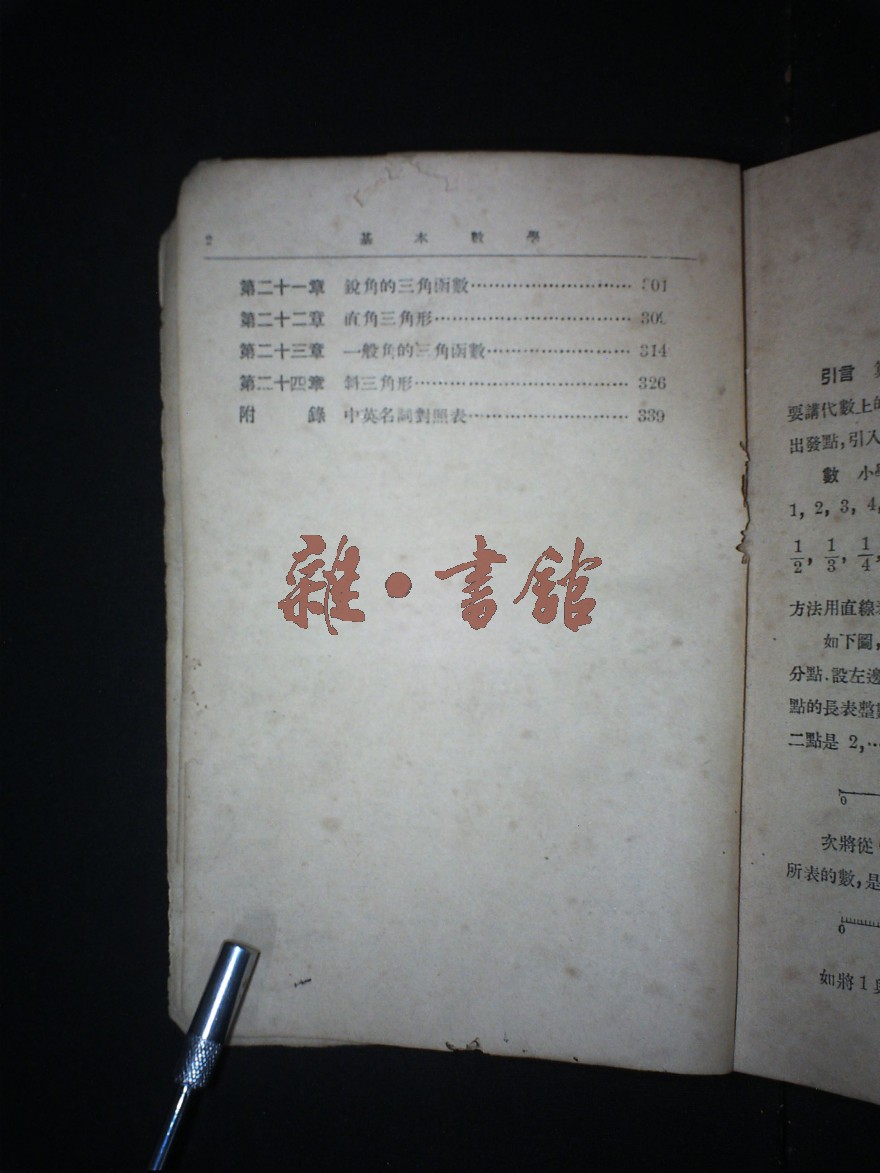 2 基本數學
第二十一章 銳角的三角函數 301
第二十二章 直角三角形 30
第二十三章 一般角的三角函數 314
第二十四章 斜三角形 326
附錄 中英名詞對照表 339
雜·書館
引言
要講代數上的
出發點,引入
數 小學
1, 2, 3, 4,
1/2, 1/3, 1/4,
方法用直線
如下圖,
分點.設左邊
點的長表整數
二點是 2,…
0
次將從
所表的數,是
0
如將1與